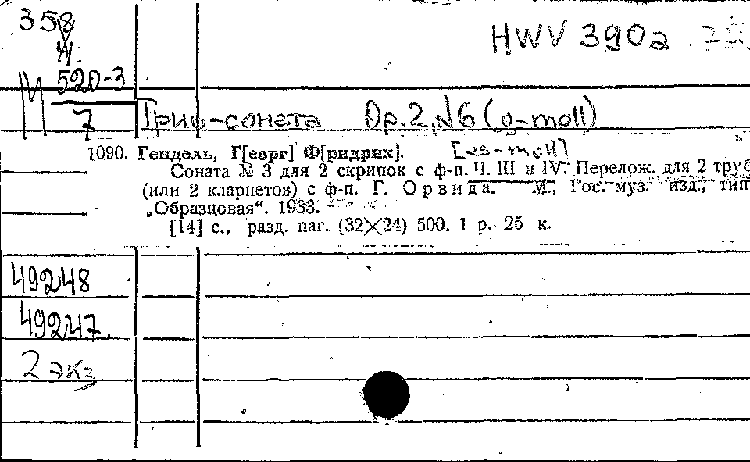 358
HWV 390a
М 520-3
7
Трио-соната Op. 2, №6 (g-moll)
1090. Гендель, Г[еорг] Ф[ридрих].
Соната № 3 для 2 скрипок с ф-п. Ч. III и IV. Перелож. для 2 труб
(или 2 кларнетов) с ф-п. Г. Орвида. М., Гос. муз. изд., тип.
„Образцовая“. 1933.
[14] с., разд. паг. (32×24) 500. 1 р. 25 к.
49248
49247
2 экз